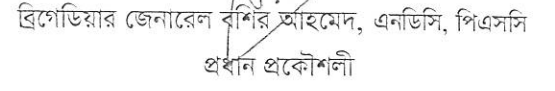 ব্রিগেডিয়ার জেনারেল বশির আহমেদ, এনডিসি, পিএসসি
প্রধান প্রকৌশলী